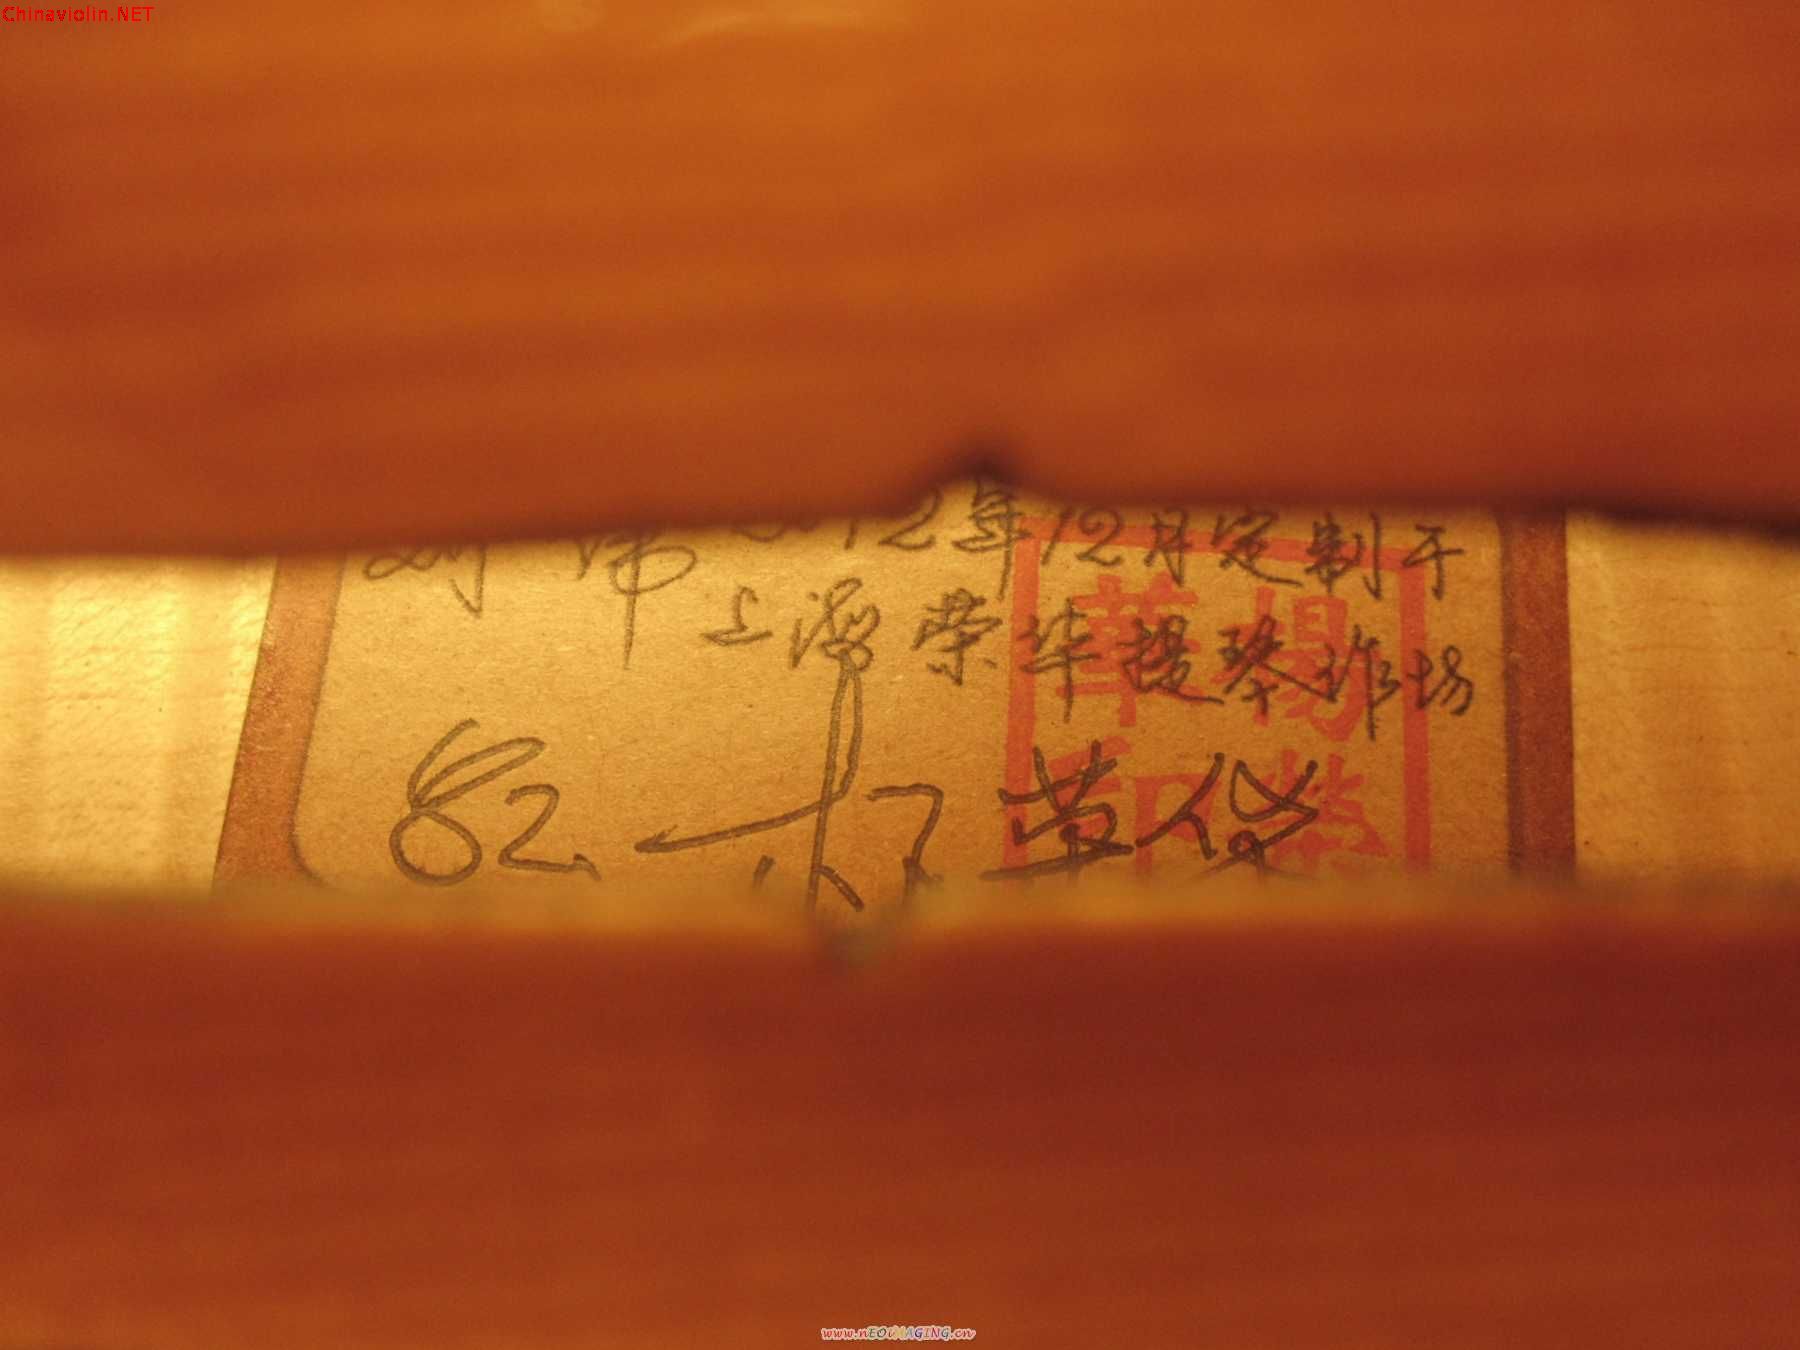 Chinaviolin.NET
刘沛 2012年12月定制于
上海荣华提琴作场
杨荣
華印
www.nEOiMAGING.cn